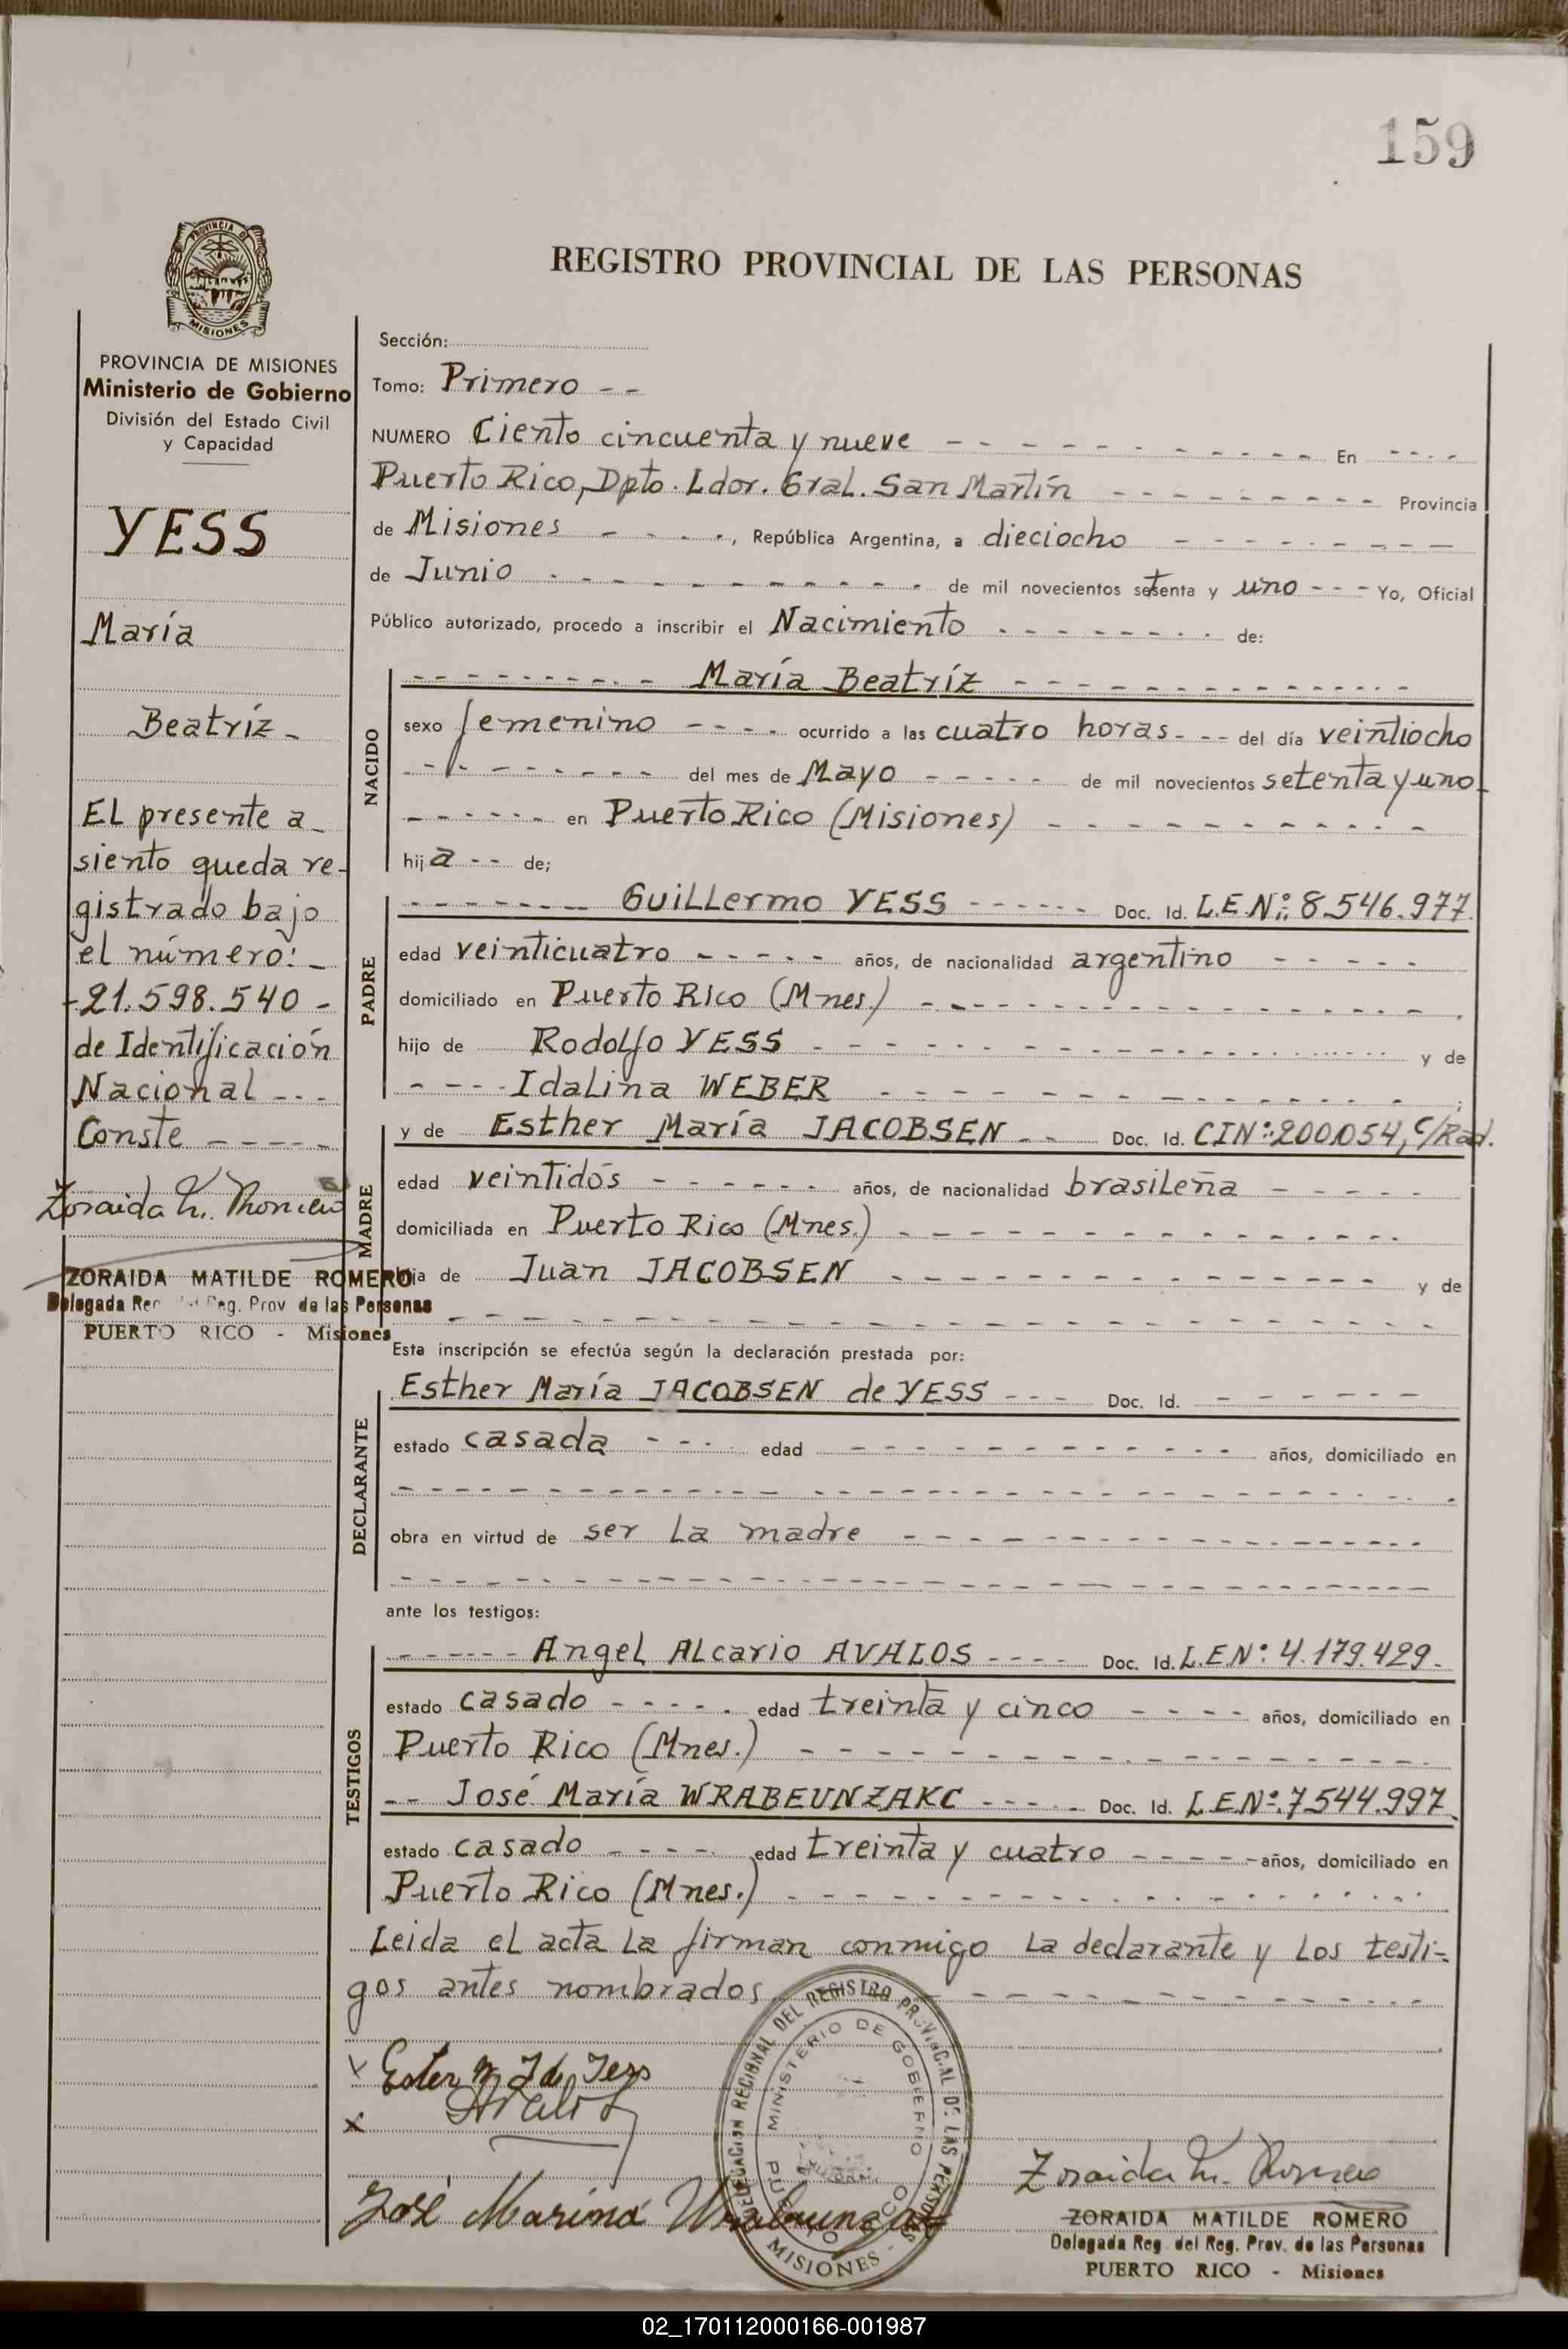 159
PROVINCIA DE
MISIONES
PROVINCIA DE MISIONES
Ministerio de Gobierno
División del Estado Civil
y Capacidad
YESS
María
Beatríz -
El presente a-
siento queda re-
gistrado bajo
el número: -
- 21.598.540 -
de Identificación
Nacional - - -
Conste - - - - -
Zoraida M. Romero
ZORAIDA MATILDE ROMERO
Delegada Reg. Prov de las Personas
PUERTO RICO - Misiones
REGISTRO PROVINCIAL DE LAS PERSONAS
Sección:
Tomo: Primero - -
NUMERO Ciento cincuenta y nueve - - - En - - - -
Puerto Rico, Dpto. Ldor. Gral. San Martín - - - Provincia
de Misiones - - - -, República Argentina, a dieciocho - - -
de Junio - - - de mil novecientos setenta y uno - - - Yo, Oficial
Público autorizado, procedo a inscribir el Nacimiento - - - de:
NACIDO
- - - María Beatríz - - -
sexo femenino - - - - ocurrido a las cuatro horas - - - del día veintiocho
- - - del mes de Mayo - - - de mil novecientos setenta y uno -
- - - en Puerto Rico (Misiones) - - -
hija - - de;
PADRE
- - - Guillermo YESS - - - Doc. Id. L.E.Nº: 8.546.977.
edad veinticuatro - - - años, de nacionalidad argentino - - -
domiciliado en Puerto Rico (Mnes.) - - -
hijo de Rodolfo YESS - - - y de
- - - - Idalina WEBER - - -
MADRE
y de Esther María JACOBSEN - - Doc. Id. CINº: 200.054, C/Rad.
edad veintidós - - - años, de nacionalidad brasileña - - -
domiciliada en Puerto Rico (Mnes.) - - -
hija de Juan JACOBSEN - - - y de
- - -
Esta inscripción se efectúa según la declaración prestada por:
DECLARANTE
Esther María JACOBSEN de YESS - - - Doc. Id. - - -
estado casada - - - - edad - - - años, domiciliado en
- - -
obra en virtud de ser la madre - - -
- - -
ante los testigos:
TESTIGOS
- - - Angel Alcario AVALOS - - - - Doc. Id. L.E.Nº: 4.179.429.
estado casado - - - - edad treinta y cinco - - - - años, domiciliado en
Puerto Rico (Mnes.) - - -
- - José María WRABEUNZAKC - - - Doc. Id. L.E.Nº: 7.544.997
estado casado - - - - edad treinta y cuatro - - - - años, domiciliado en
Puerto Rico (Mnes.) - - -
Leida el acta la firman conmigo la declarante y los testi-
gos antes nombrados - - -
DELEGACION REGIONAL DEL REGISTRO PROVINCIAL DE LAS PERSONAS
MINISTERIO DE GOBIERNO
PUERTO RICO
MISIONES
x Ester M J de Yess
x Avalos
José María
Zoraida M. Romero
ZORAIDA MATILDE ROMERO
Delegada Reg. del Reg. Prov. de las Personas
PUERTO RICO - Misiones
02_170112000166-001987